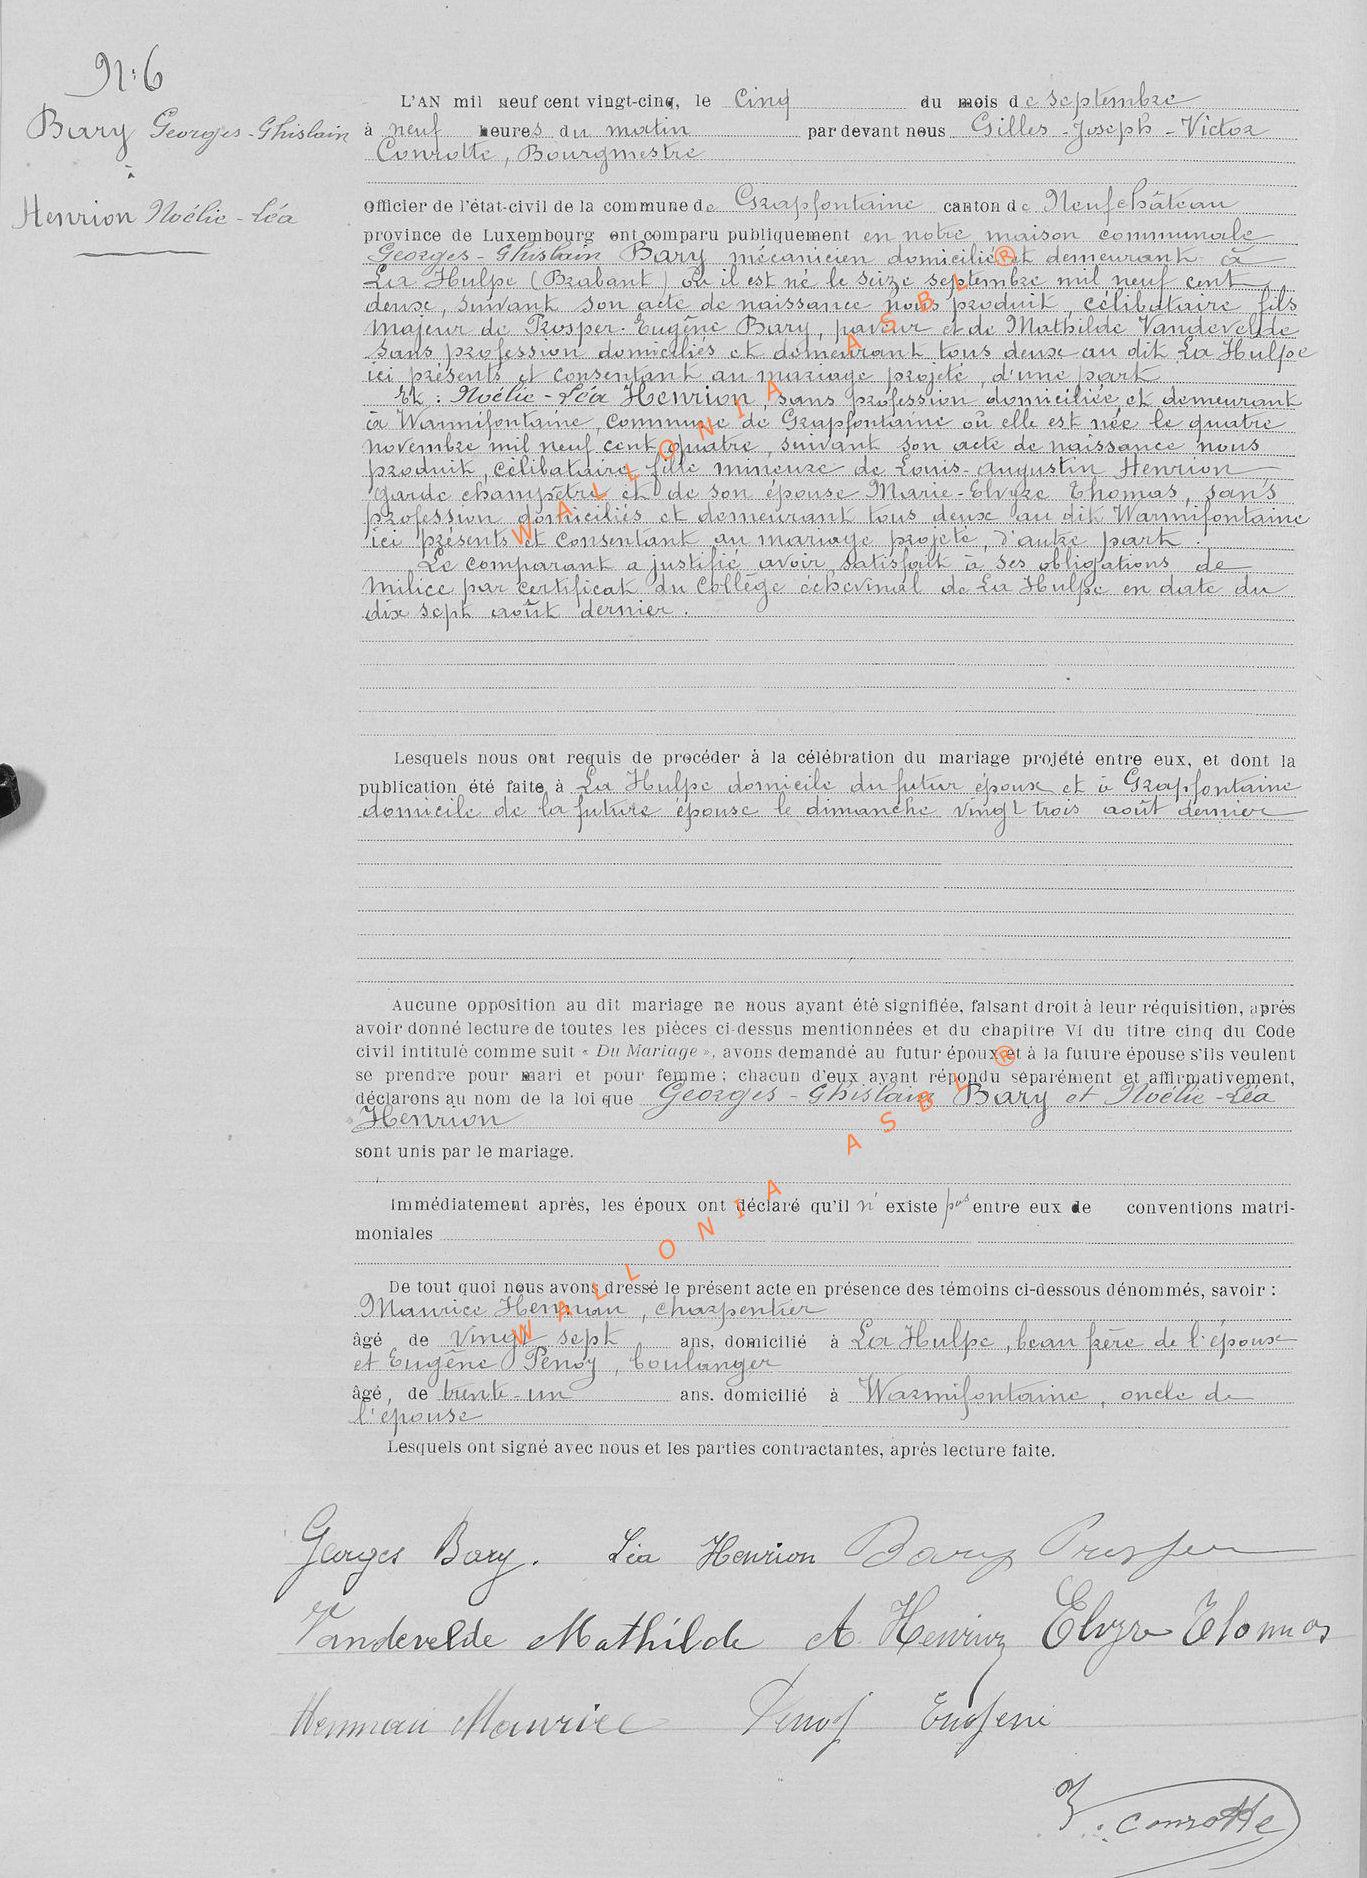 N: 6
Bary Georges-Ghislain
à
Henrion Noélie-Léa
L'AN mil neuf cent vingt-cinq, le cinq du mois de septembre
à neuf heures du matin par devant nous Gilles-Joseph-Victor
Conrotte, Bourgmestre
Officier de l'état-civil de la commune de Grapfontaine canton de Neufchâteau
province de Luxembourg ont comparu publiquement en notre maison communale
Georges-Ghislain Bary mécanicien domicilié et demeurant à
La Hulpe (Brabant) où il est né le seize septembre mil neuf cent
deux, suivant son acte de naissance nous produit, célibataire fils
majeur de Prosper-Eugène Bary, paveur et de Mathilde Vandevelde
sans profession domiciliés et demeurant tous deux au dit La Hulpe
ici présents et consentant au mariage projeté, d'une part
Et : Noélie-Léa Henrion, sans profession domiciliée et demeurant
à Warmifontaine, commune de Grapfontaine où elle est née le quatre
novembre mil neuf cent quatre, suivant son acte de naissance nous
produit, célibataire fille mineure de Louis-Augustin Henrion
garde champêtre et de son épouse Marie-Elvyre Thomas, sans
profession domiciliés et demeurant tous deux au dit Warmifontaine
ici présents et consentant au mariage projeté, d'autre part.
Le comparant a justifié avoir satisfait à ses obligations de
milice par certificat du Collège échevinal de La Hulpe en date du
dix sept août dernier.
Lesquels nous ont requis de procéder à la célébration du mariage projété entre eux, et dont la
publication été faite, à La Hulpe domicile du futur époux et à Grapfontaine
domicile de la future épouse le dimanche vingt trois août dernier
Aucune opposition au dit mariage ne nous ayant été signifiée, faisant droit à leur réquisition, après
avoir donné lecture de toutes les pièces ci-dessus mentionnées et du chapitre VI du titre cinq du Code
civil intitulé comme suit « Du Mariage », avons demandé au futur époux et à la future épouse s'ils veulent
se prendre pour mari et pour femme ; chacun d'eux ayant répondu séparément et affirmativement,
déclarons au nom de la loi que Georges-Ghislain Bary et Noélie-Léa
Henrion
sont unis par le mariage.
Immédiatement après, les époux ont déclaré qu'il n'existe pas entre eux de conventions matri-
moniales
De tout quoi nous avons dressé le présent acte en présence des témoins ci-dessous dénommés, savoir :
Maurice Henman, charpentier
âgé de vingt sept ans, domicilié à La Hulpe, beau frère de l'époux
et Eugène Penoy, boulanger
âgé, de trente-un ans. domicilié à Warmifontaine, oncle de
l'épouse
Lesquels ont signé avec nous et les parties contractantes, après lecture faite.
Georges Bary. Léa Henrion Bary Prosper
Vandevelde Mathilde A. Henrion Elvyre Thomas
Henman Maurice Penoy Eugène
V. Conrotte
WALLONIA ASBL ®
WALLONIA ASBL ®